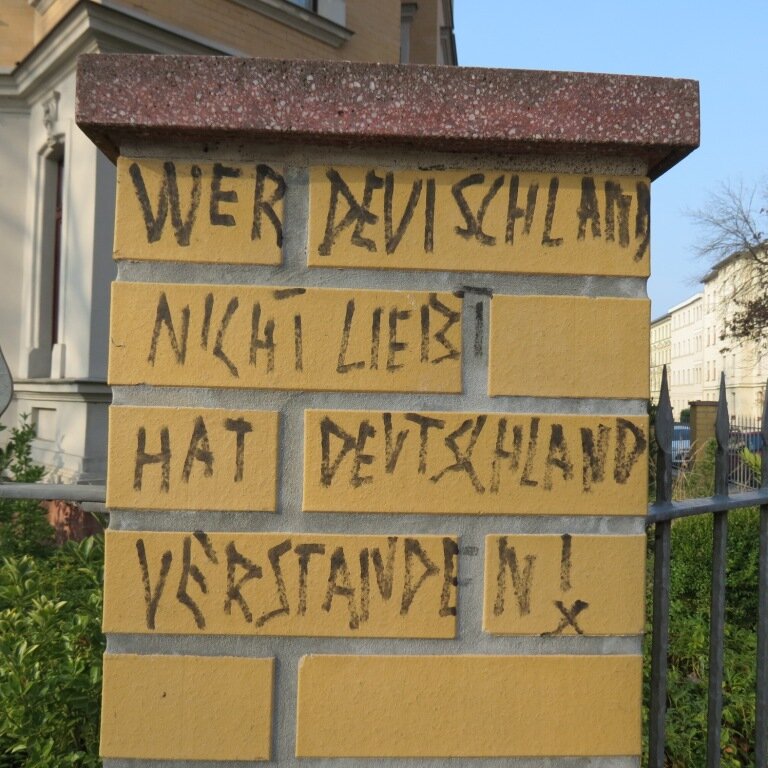 WER DEUTSCHLAND
NICHT LIEBT
HAT DEUTSCHLAND
VERSTANDEN!